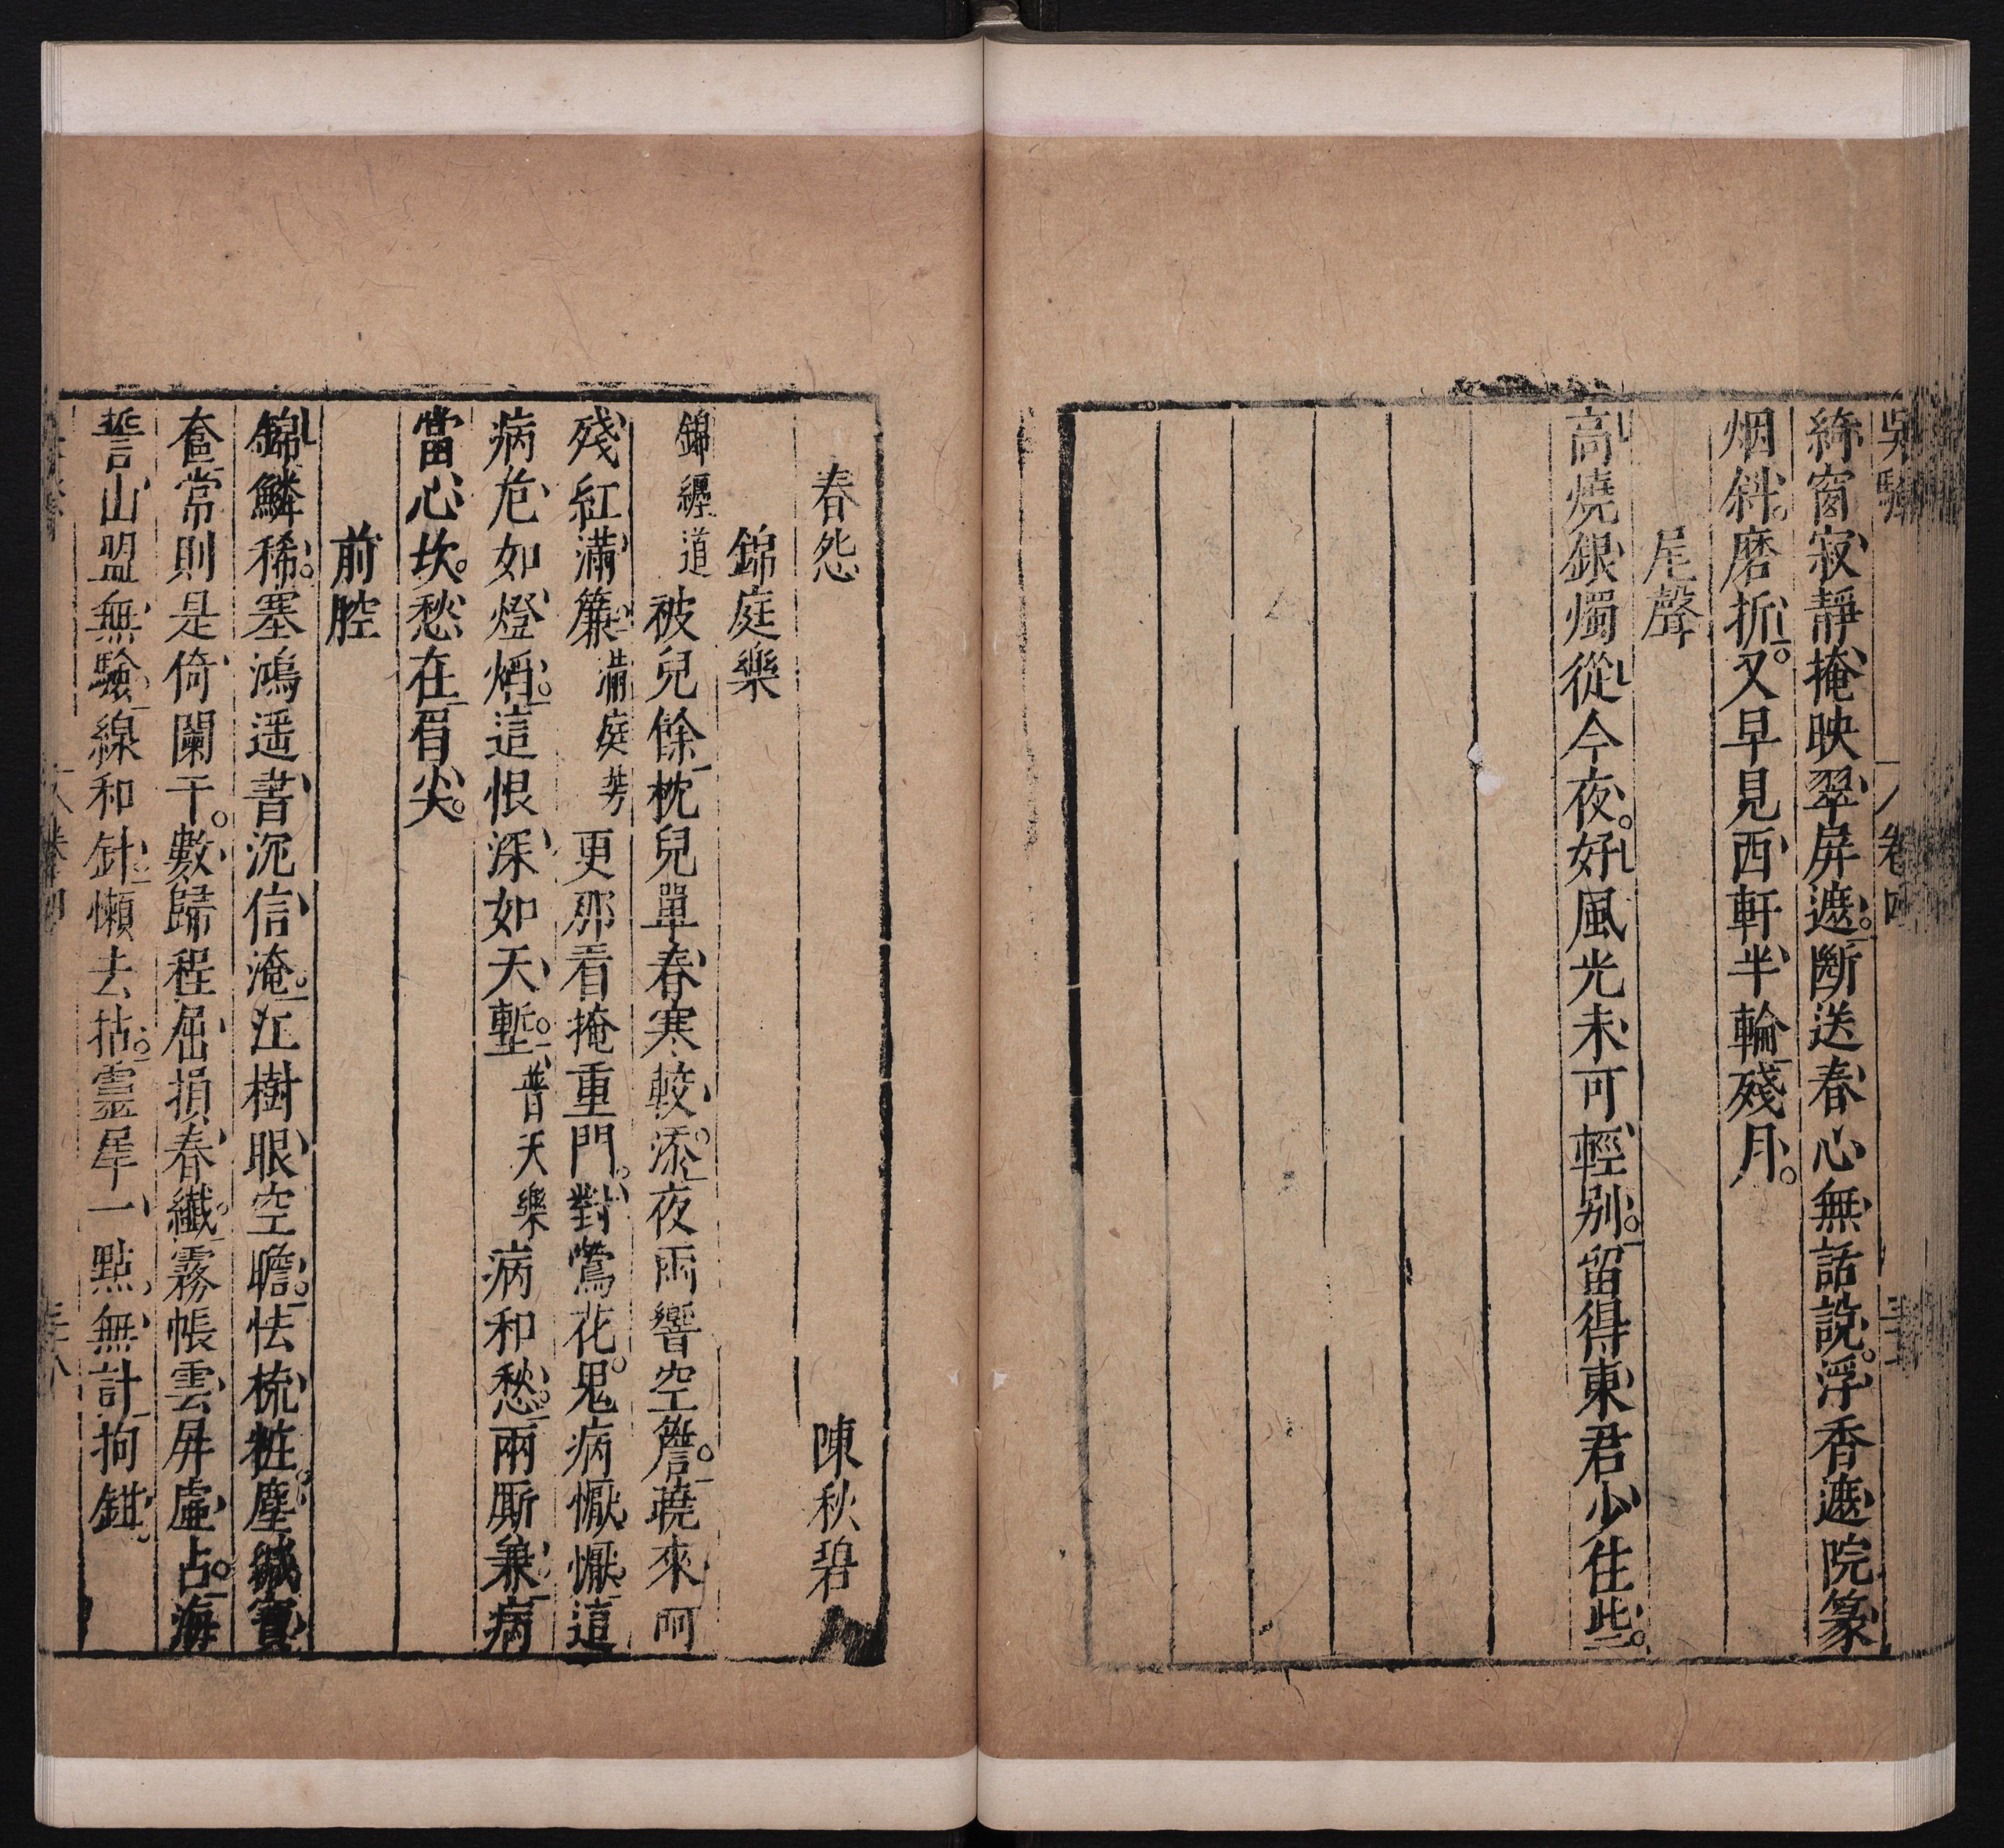 卷四
綺窗寂靜掩映翠屏遮。斷送春心無話說。浮香遮院篆
烟斜。磨折。又早見西軒半輪殘月。
尾聲
高燒銀燭從今夜。好風光未可輕别。留得東君少住些。
春怨 陳秋碧
錦庭樂
錦纏道 被兒餘枕兒單春寒較添。夜雨響空簷。曉來呵
殘紅滿簾。滿庭芳 更那看掩重門。對鶯花。鬼病懨懨。這
病危如燈焰。這恨深如天塹。普天樂 病和愁。兩厮兼。病
當心坎。愁在眉尖。
前腔
錦鱗稀。塞鴻遥書沉信淹。江樹眼空瞻。怯梳粧。塵緘寶
奩。常則是倚闌干。數歸程屈損春纖。霧帳雲屏虛占。海
誓山盟無驗。線和針懶去拈。靈犀一點無計拘鉗。